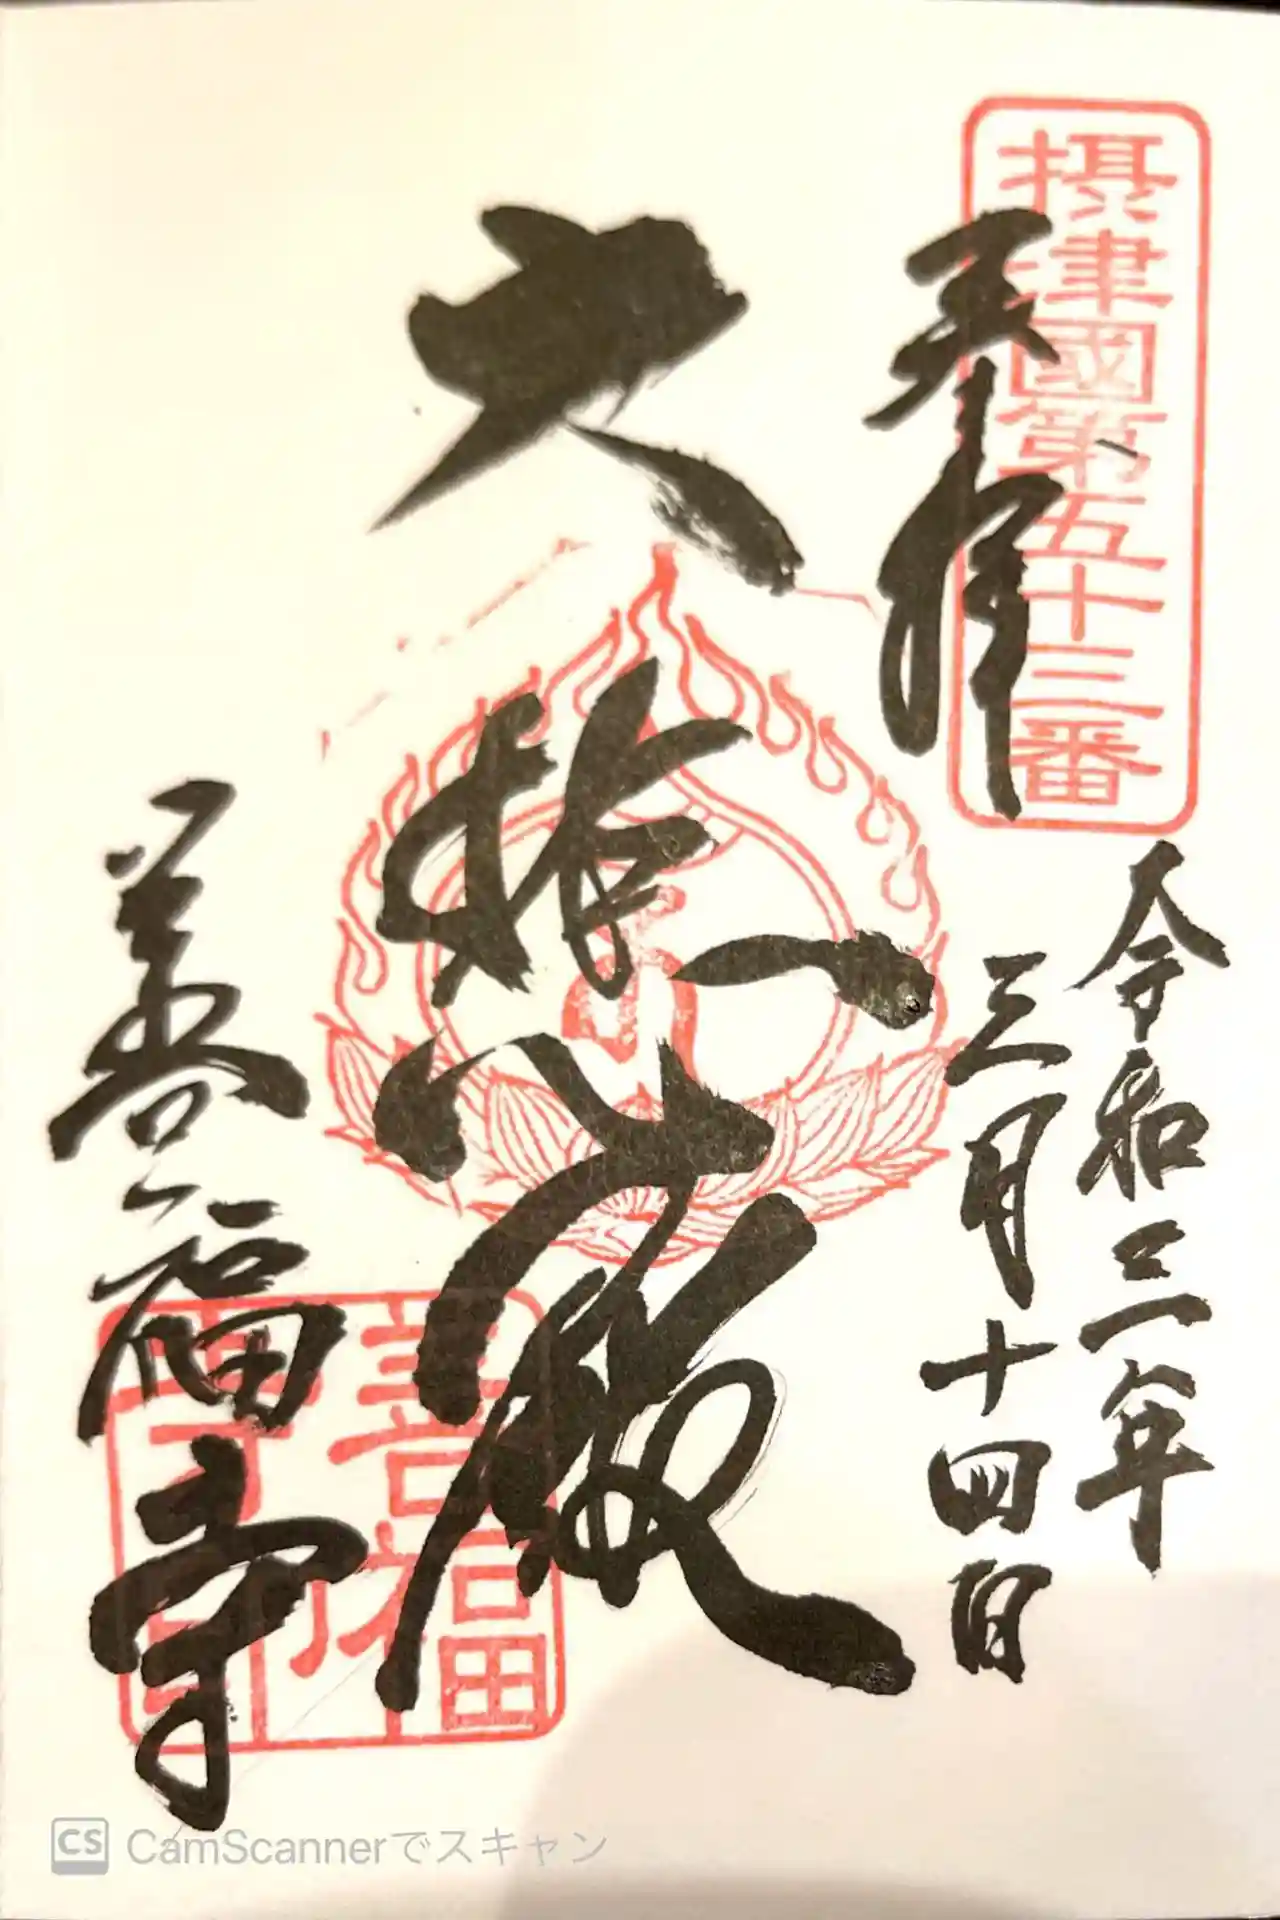 摂津國第五十三番
奉拝
令和三年
三月十四日
大捨心殿
善福寺
善福
寺印
CS CamScannerでスキャン